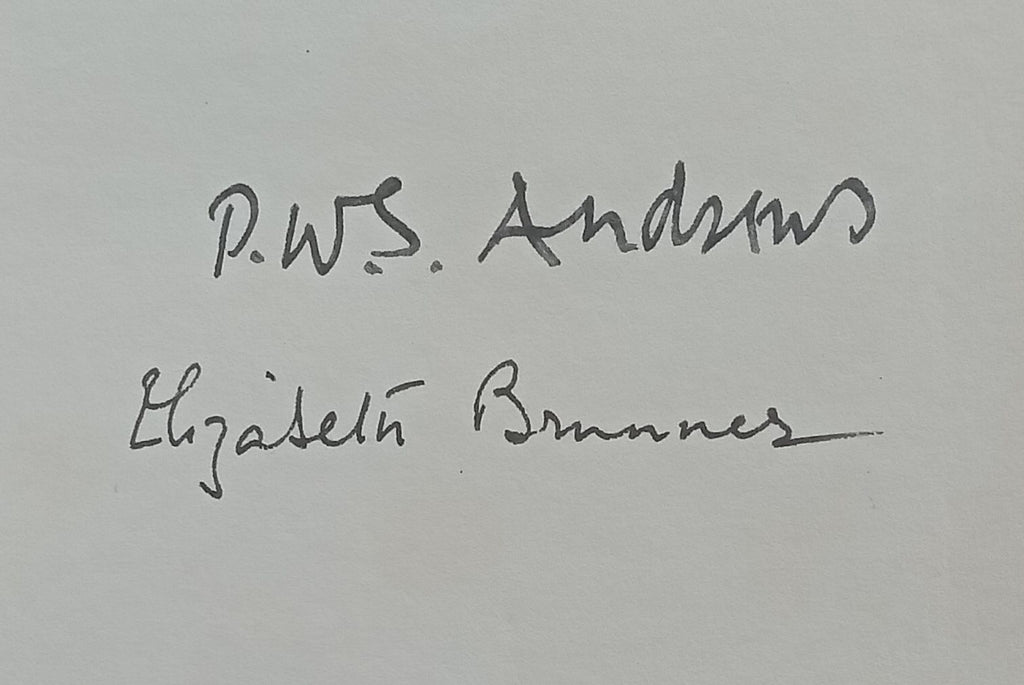 P.W.S. Andrews
Elizabeth Brunner